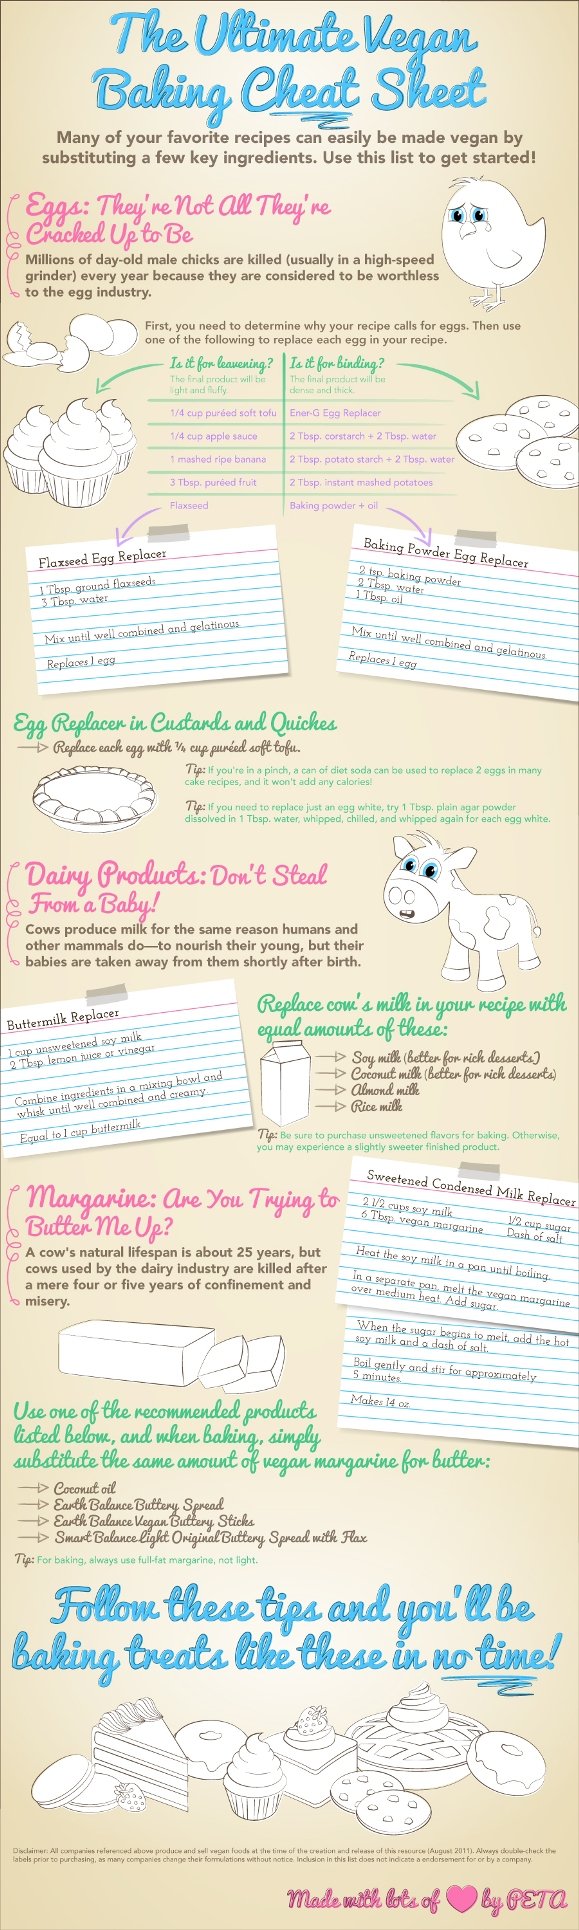 The Ultimate Vegan
Baking Cheat Sheet
Many of your favorite recipes can easily be made vegan by
substituting a few key ingredients. Use this list to get started!
Eggs: They're Not All They're
Cracked Up to Be
Millions of day-old male chicks are killed (usually in a high-speed
grinder) every year because they are considered to be worthless
to the egg industry.
First, you need to determine why your recipe calls for eggs. Then use
one of the following to replace each egg in your recipe.
Is it for leavening?
The final product will be
light and fluffy.
Is it for binding?
The final product will be
dense and thick.
1/4 cup puréed soft tofu
Ener-G Egg Replacer
1/4 cup apple sauce
2 Tbsp. corstarch + 2 Tbsp. water
1 mashed ripe banana
2 Tbsp. potato starch + 2 Tbsp. water
3 Tbsp. puréed fruit
2 Tbsp. instant mashed potatoes
Flaxseed
Baking powder + oil
Flaxseed Egg Replacer
1 Tbsp. ground flaxseeds
3 Tbsp. water
Mix until well combined and gelatinous.
Replaces 1 egg
Baking Powder Egg Replacer
2 tsp. baking powder
2 Tbsp. water
1 Tbsp. oil
Mix until well combined and gelatinous.
Replaces 1 egg
Egg Replacer in Custards and Quiches
Replace each egg with 1/4 cup puréed soft tofu.
Tip: If you're in a pinch, a can of diet soda can be used to replace 2 eggs in many
cake recipes, and it won't add any calories!
Tip: If you need to replace just an egg white, try 1 Tbsp. plain agar powder
dissolved in 1 Tbsp. water, whipped, chilled, and whipped again for each egg white.
Dairy Products: Don't Steal
From a Baby!
Cows produce milk for the same reason humans and
other mammals do—to nourish their young, but their
babies are taken away from them shortly after birth.
Buttermilk Replacer
1 cup unsweetened soy milk
2 Tbsp. lemon juice or vinegar
Combine ingredients in a mixing bowl and
whisk until well combined and creamy.
Equal to 1 cup buttermilk
Replace cow's milk in your recipe with
equal amounts of these:
Soy milk (better for rich desserts)
Coconut milk (better for rich desserts)
Almond milk
Rice milk
Tip: Be sure to purchase unsweetened flavors for baking. Otherwise,
you may experience a slightly sweeter finished product.
Margarine: Are You Trying to
Butter Me Up?
A cow's natural lifespan is about 25 years, but
cows used by the dairy industry are killed after
a mere four or five years of confinement and
misery.
Sweetened Condensed Milk Replacer
2 1/2 cups soy milk
1/2 cup sugar
6 Tbsp. vegan margarine
Dash of salt
Heat the soy milk in a pan until boiling.
In a separate pan, melt the vegan margarine
over medium heat. Add sugar.
When the sugar begins to melt, add the hot
soy milk and a dash of salt.
Boil gently and stir for approximately
5 minutes.
Makes 14 oz.
Use one of the recommended products
listed below, and when baking, simply
substitute the same amount of vegan margarine for butter:
Coconut oil
Earth Balance Buttery Spread
Earth Balance Vegan Buttery Sticks
Smart Balance Light Original Buttery Spread with Flax
Tip: For baking, always use full-fat margarine, not light.
Follow these tips and you'll be
baking treats like these in no time!
Disclaimer: All companies referenced above produce and sell vegan foods at the time of the creation and release of this resource (August 2011). Always double-check the
labels prior to purchasing, as many companies change their formulations without notice. Inclusion in this list does not indicate a endorsement for or by a company.
Made with lots of by PETA